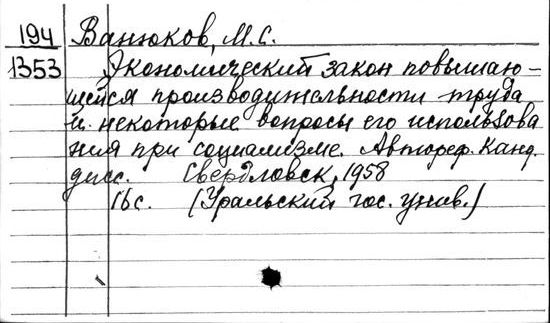 194 Ванюков, М.С.
1353 Экономический закон повышаю-
щейся производительности труда
и некоторые вопросы его использова
ния при социализме. Автореф. Канд.
дисс. Свердловск, 1958
16 с. (Уральский гос. унив.)